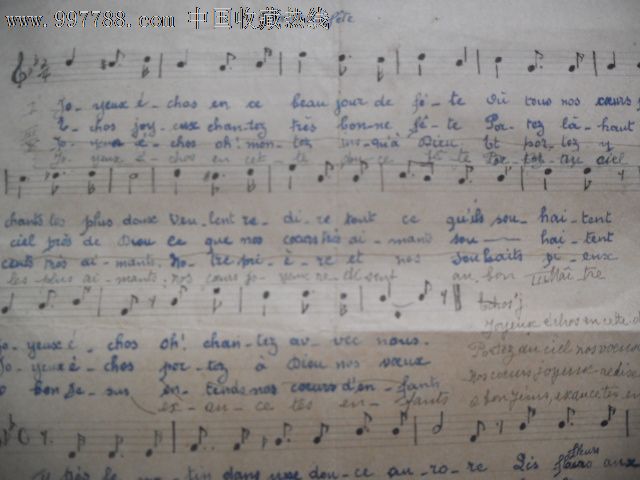 www.997788.com 中国收藏热线
fête
Jo-yeux é-chos en ce beau jour de fê-te Où tous nos cœurs
E-chos joy-eux chan-tez très bon-ne fê-te Por-tez là-haut
Jo-yeux é-chos oh! mon-tez jus-qu'à Dieu Et por-tez y
Jo-yeux é-chos en cet-te dou-ce fê-te Por-tez au ciel
chants les plus doux Veu-lent re-di-re tout ce qu'ils sou-hai-tent
ciel près de Dieu Ce que nos cœurs très ai-mants sou-hai-tent
très ai-mants No-tre pri-è-re et nos souhaits pi-eux
les plus ai-mants, nos cœurs jo-yeux au bon Maî-tre
Jo-yeux é-chos oh! chan-tez av-vec nous.
Jo-yeux é-chos por-tez à Dieu nos vœux
O bon Jé-sus en-tends nos cœurs d'en-fants
ex-au-ce tes en-fants
Echos
Joyeux échos en cette
Portez au ciel nos vœux
Nos cœurs joyeux
O bon Jésus, exauce tes en
le ma-tin dans une dou-ce au-ro-re Dis fleurs aux